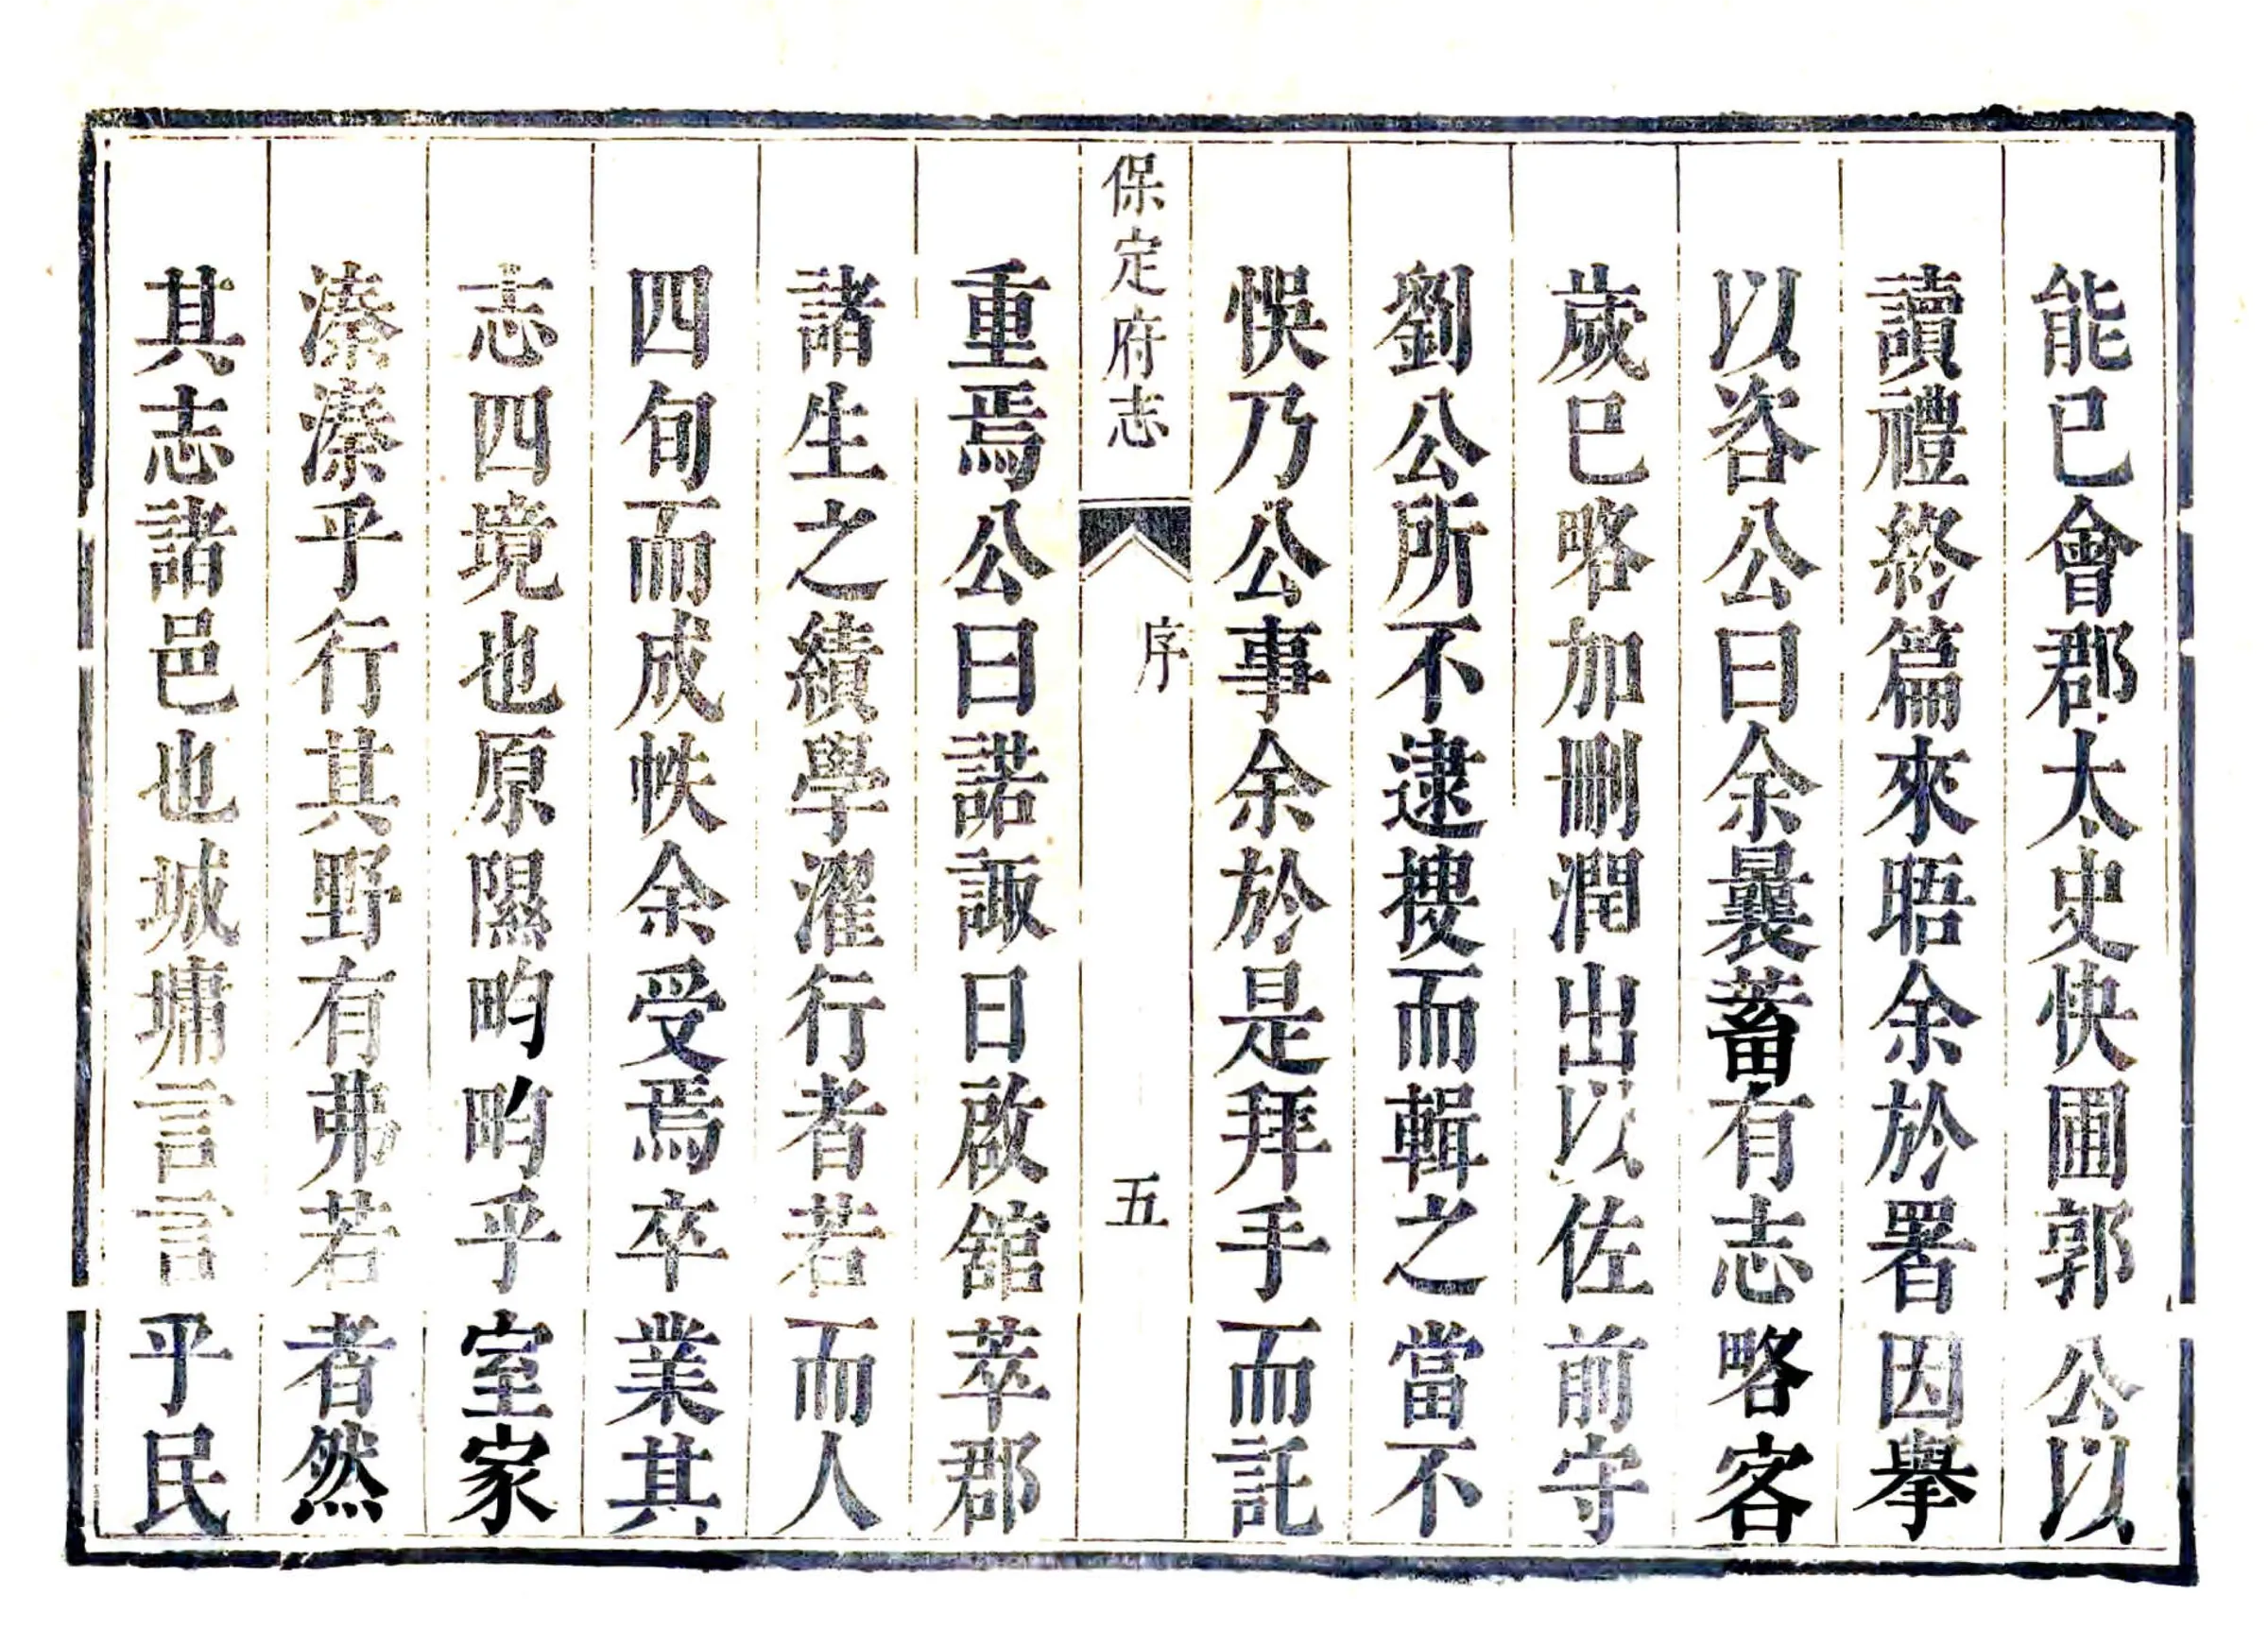 能已會郡太史快圃郭公以
讀禮終篇來晤余於署因舉
以咨公曰余曩蓄有志略客
歲已略加刪潤出以佐前守
劉公所不逮搜而輯之當不
悞乃公事余於是拜手而託
保定府志
序
五
重焉公曰諾諏日啟舘萃郡
諸生之績學濯行者若而人
四旬而成帙余受焉卒業其
志四境也原隰畇畇乎室家
溱溱乎行其野有弗若者然
其志諸邑也城墉言言乎民